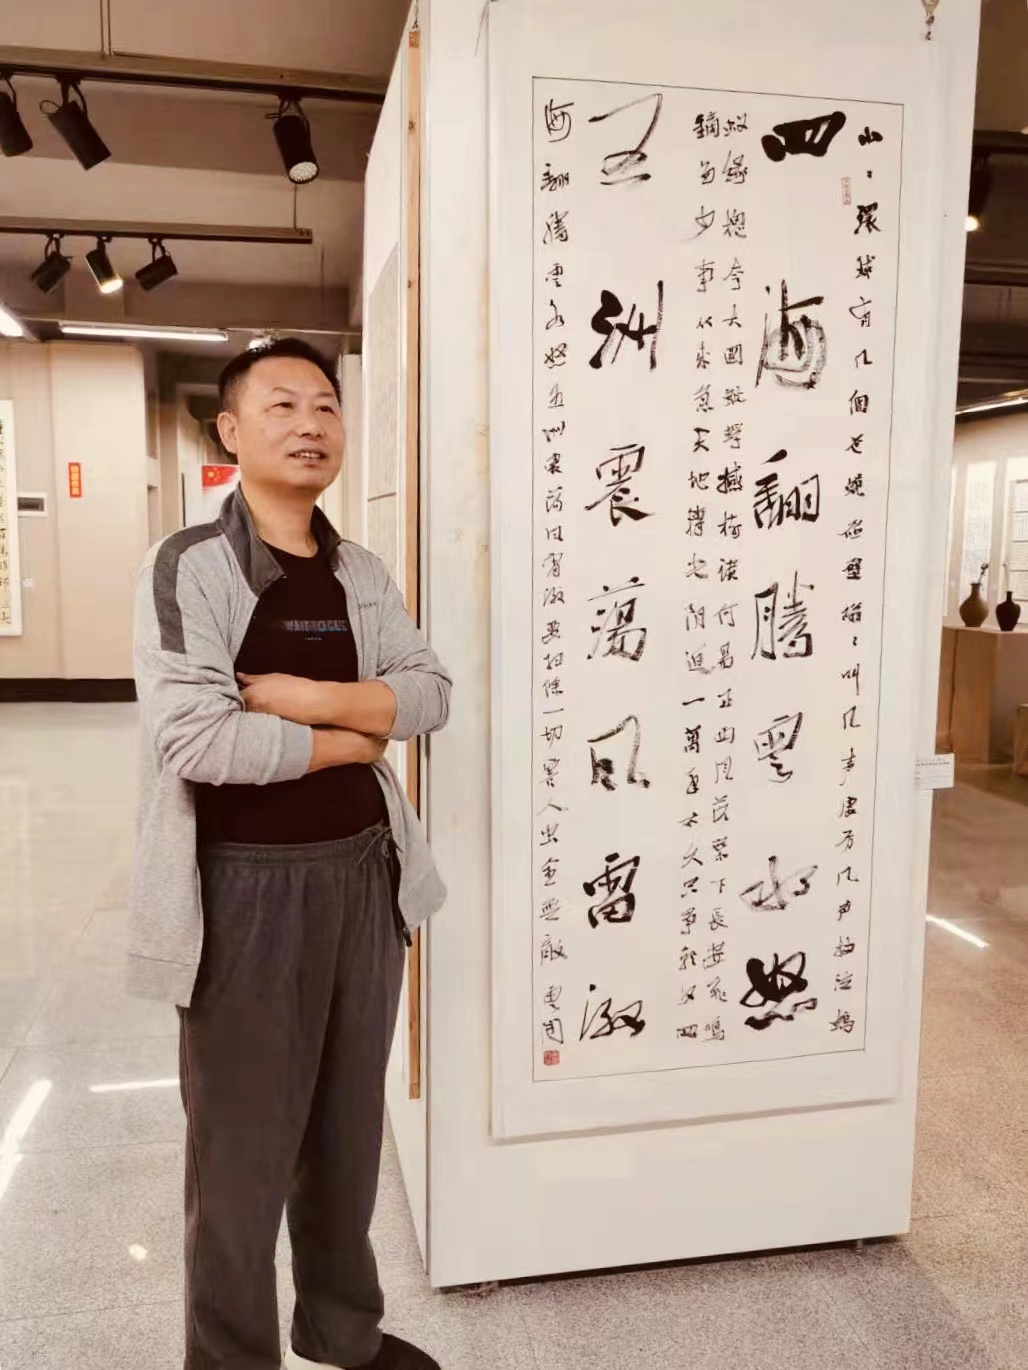 小〻環球有几個苍蝇碰壁嗡〻叫几声凄厉几声抽泣螞
四海翻騰雲水怒
蚁缘槐夸大國蚍蜉撼树谈何易正西风落葉下長安飛鳴
鏑多少事从来急天地轉光阴迫一萬年太久只争朝夕四
五洲震蕩风雷激
海翻騰雲水怒五洲震荡风雷激要扫除一切害人虫全無敵